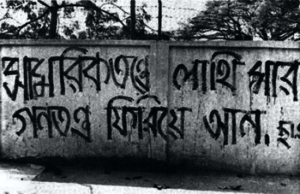 সামরিকতন্ত্রে লাথি মার
গনতন্ত্র ফিরিয়ে আন.